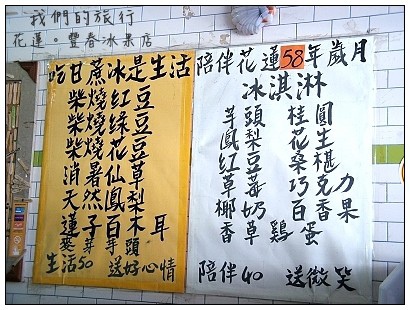 我們的旅行
花蓮。豐春冰菓店
吃甘蔗冰是生活
柴燒紅豆
柴燒綠豆
柴燒花豆
消暑仙草
天然鳳梨
蓮子百木耳
麥芽芋頭
生活50 送好心情
陪伴花蓮58年歲月
冰淇淋
芋頭 桂圓
鳳梨 花生
紅豆 桑椹
草莓 巧克力
椰奶 百香果
香草 鷄蛋
陪伴40 送微笑